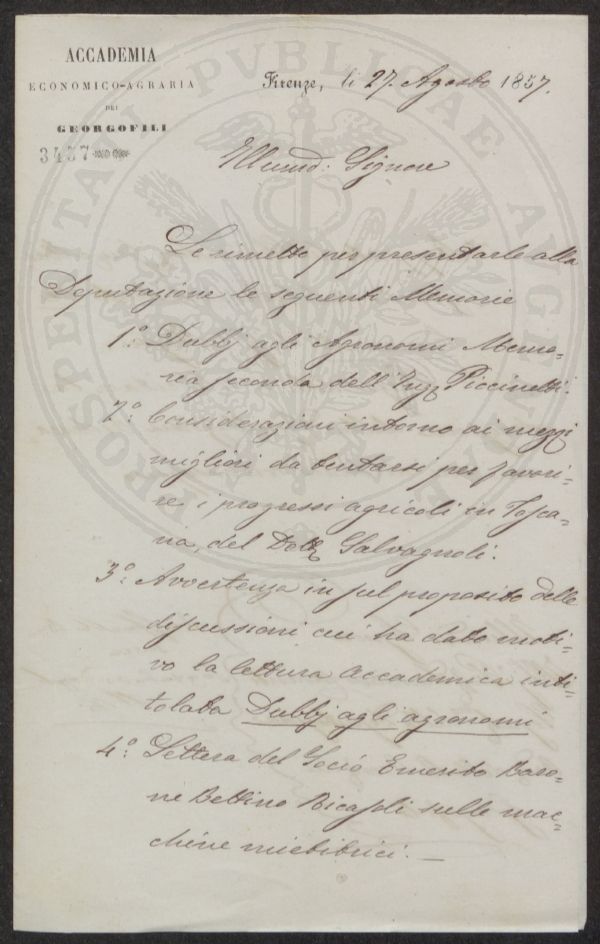 ACCADEMIA
ECONOMICO-AGRARIA
DEI
GEORGOFILI
3437
Firenze, li 27. Agosto 1857.
Illmo: Signore
Le rimetto per presentarle alla
Deputazione le seguenti Memorie
1.° Dubbj agli Agronomi Memo=
ria seconda dell'Ingr Piccinetti.
2.° Considerazioni intorno ai mezzi
migliori da tentarsi per favori=
re i progressi agricoli in Tosca=
na, del Dott. Salvagnoli.
3.° Avvertenza in sul proposito delle
discussioni cui ha dato moti=
vo la lettura Accademica inti=
tolata Dubbj agli agronomi
4.° Lettera del Socio Emerito Baro=
ne Bettino Ricasoli sulle mac=
chine mietitrici. —
PROSPERITATI PVBLICAE AVGENDAE